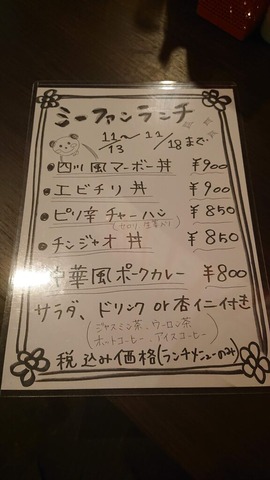 ミーファンランチ
11/13〜11/18まで
・四川風マーボー丼 ¥900
・エビチリ丼 ¥900
・ピリ辛チャーハン ¥850
(セロリ 生姜入り)
・チンジャオ丼 ¥850
中華風ポークカレー ¥800
サラダ、ドリンク or 杏仁付き
(ジャスミン茶、ウーロン茶
ホットコーヒー、アイスコーヒー)
税込み価格(ランチメニューのみ)